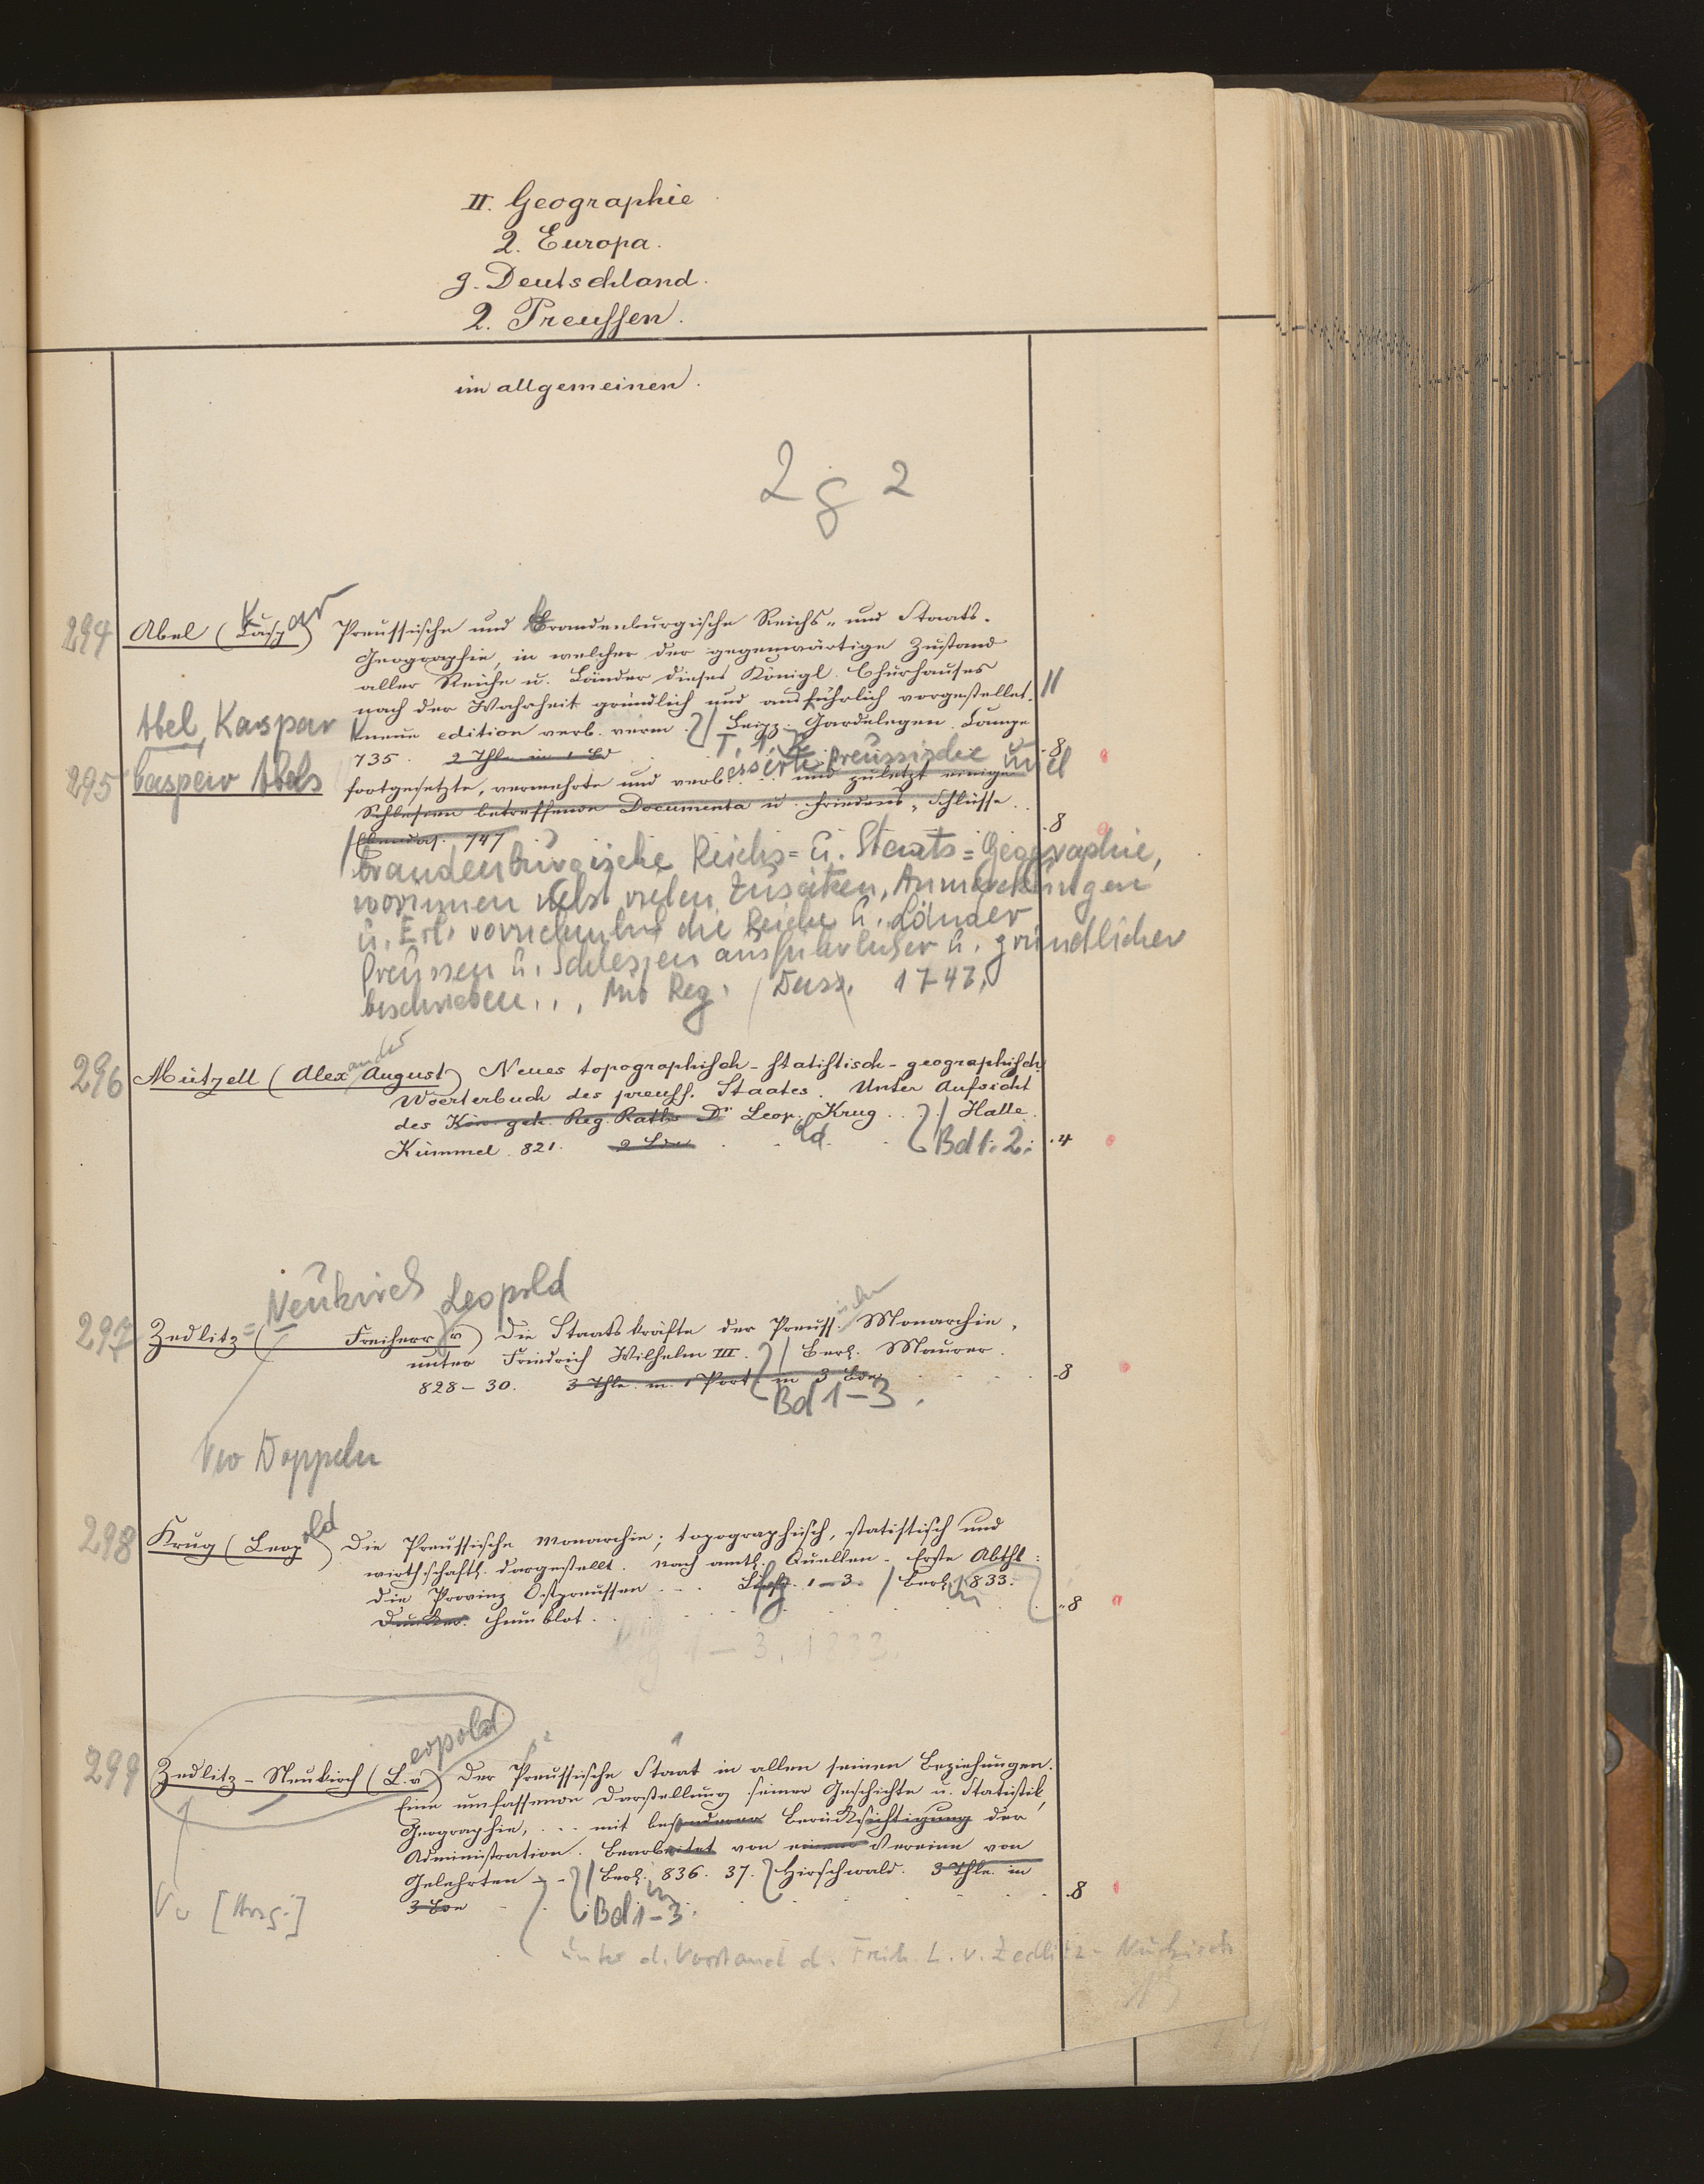 II. Geographie
2. Europa.
g. Deutschland.
2. Preussen.
im allgemeinen.
2 g 2
294 Abel (Caspar) Preussische und Brandenburgische Reichs- und Staats-
Geographie, in welcher der gegenwärtige Zustand
aller Reiche u. Länder dieses Königl. Churhauses
nach der Wahrheit gründlich und ausführlich vorgestellet.
neue edition verb. verm. Leipz. Gardelegen. Campe
735. 2 Thle in 1 Bd T. 1, 2. 8
Abel, Kaspar
295 Caspar Abels fortgesetzte, vermehrte und verbesserte preussische u
und zuletzt einige
Schlesien betreffende Documenta u. Friedens-Schlüsse..
Ebendas. 747 8
brandenburgische Reichs= u. Staats=Geographie,
worinnen nebst vielen Zusätzen, Anmerckungen
u. Erl. vornehmlich die Reiche u. Länder
Preussen u. Schlesien ausführlicher u. gründlicher
beschrieben... Mit Reg. 1747.
296 Mützell (Alexander August) Neues topographisch-statistisch-geographisch.
Woerterbuch des preuss. Staates. Unter Aufsicht
des Kön. geh. Reg. Raths Dr Leopold Krug... Halle.
Kümmel. 821. 2 Bde Bd 1. 2. 4
297 Zedlitz=Neukirch (Freiherr v Leopold) Die Staatskräfte der Preussischen Monarchie,
unter Friedrich Wilhelm III. Berl. Maurer.
828-30. 3 Thle. m. 1 Port. in 3 Bde 8
Bd 1-3.
Vw Doppeln
298 Krug (Leopold) Die Preussische Monarchie; topographisch, statistisch und
wirthschaftl. dargestellt. nach amtl. Quellen- Erste Abthl:
die Provinz Ostpreussen... Lfg. 1-3. Berl. 1833.
Duncker. Humblot. 8
1-3. 1833.
299 Zedlitz-Neukirch (Leopold v) Der Preussische Staat in allen seinen Beziehungen.
Eine umfassende Darstellung seiner Geschichte u. Statistik,
Geographie,... mit besonderer Berücksichtigung der
Administration. Bearbeitet von einem Vereine von
Gelehrten - Berl. 836. 37. Hirschwald. 3 Thle. in
3 Bde 8
Bd 1-3.
Vw [Hrsg.]
unter d. Vorstand d. Freih. L. v. Zedlitz-Neukirch